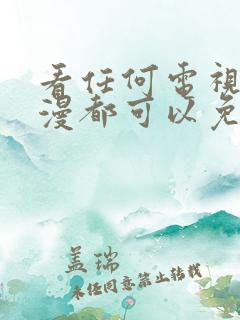 看任何電視
漫都可以免
盖瑞
未任同意禁止转载